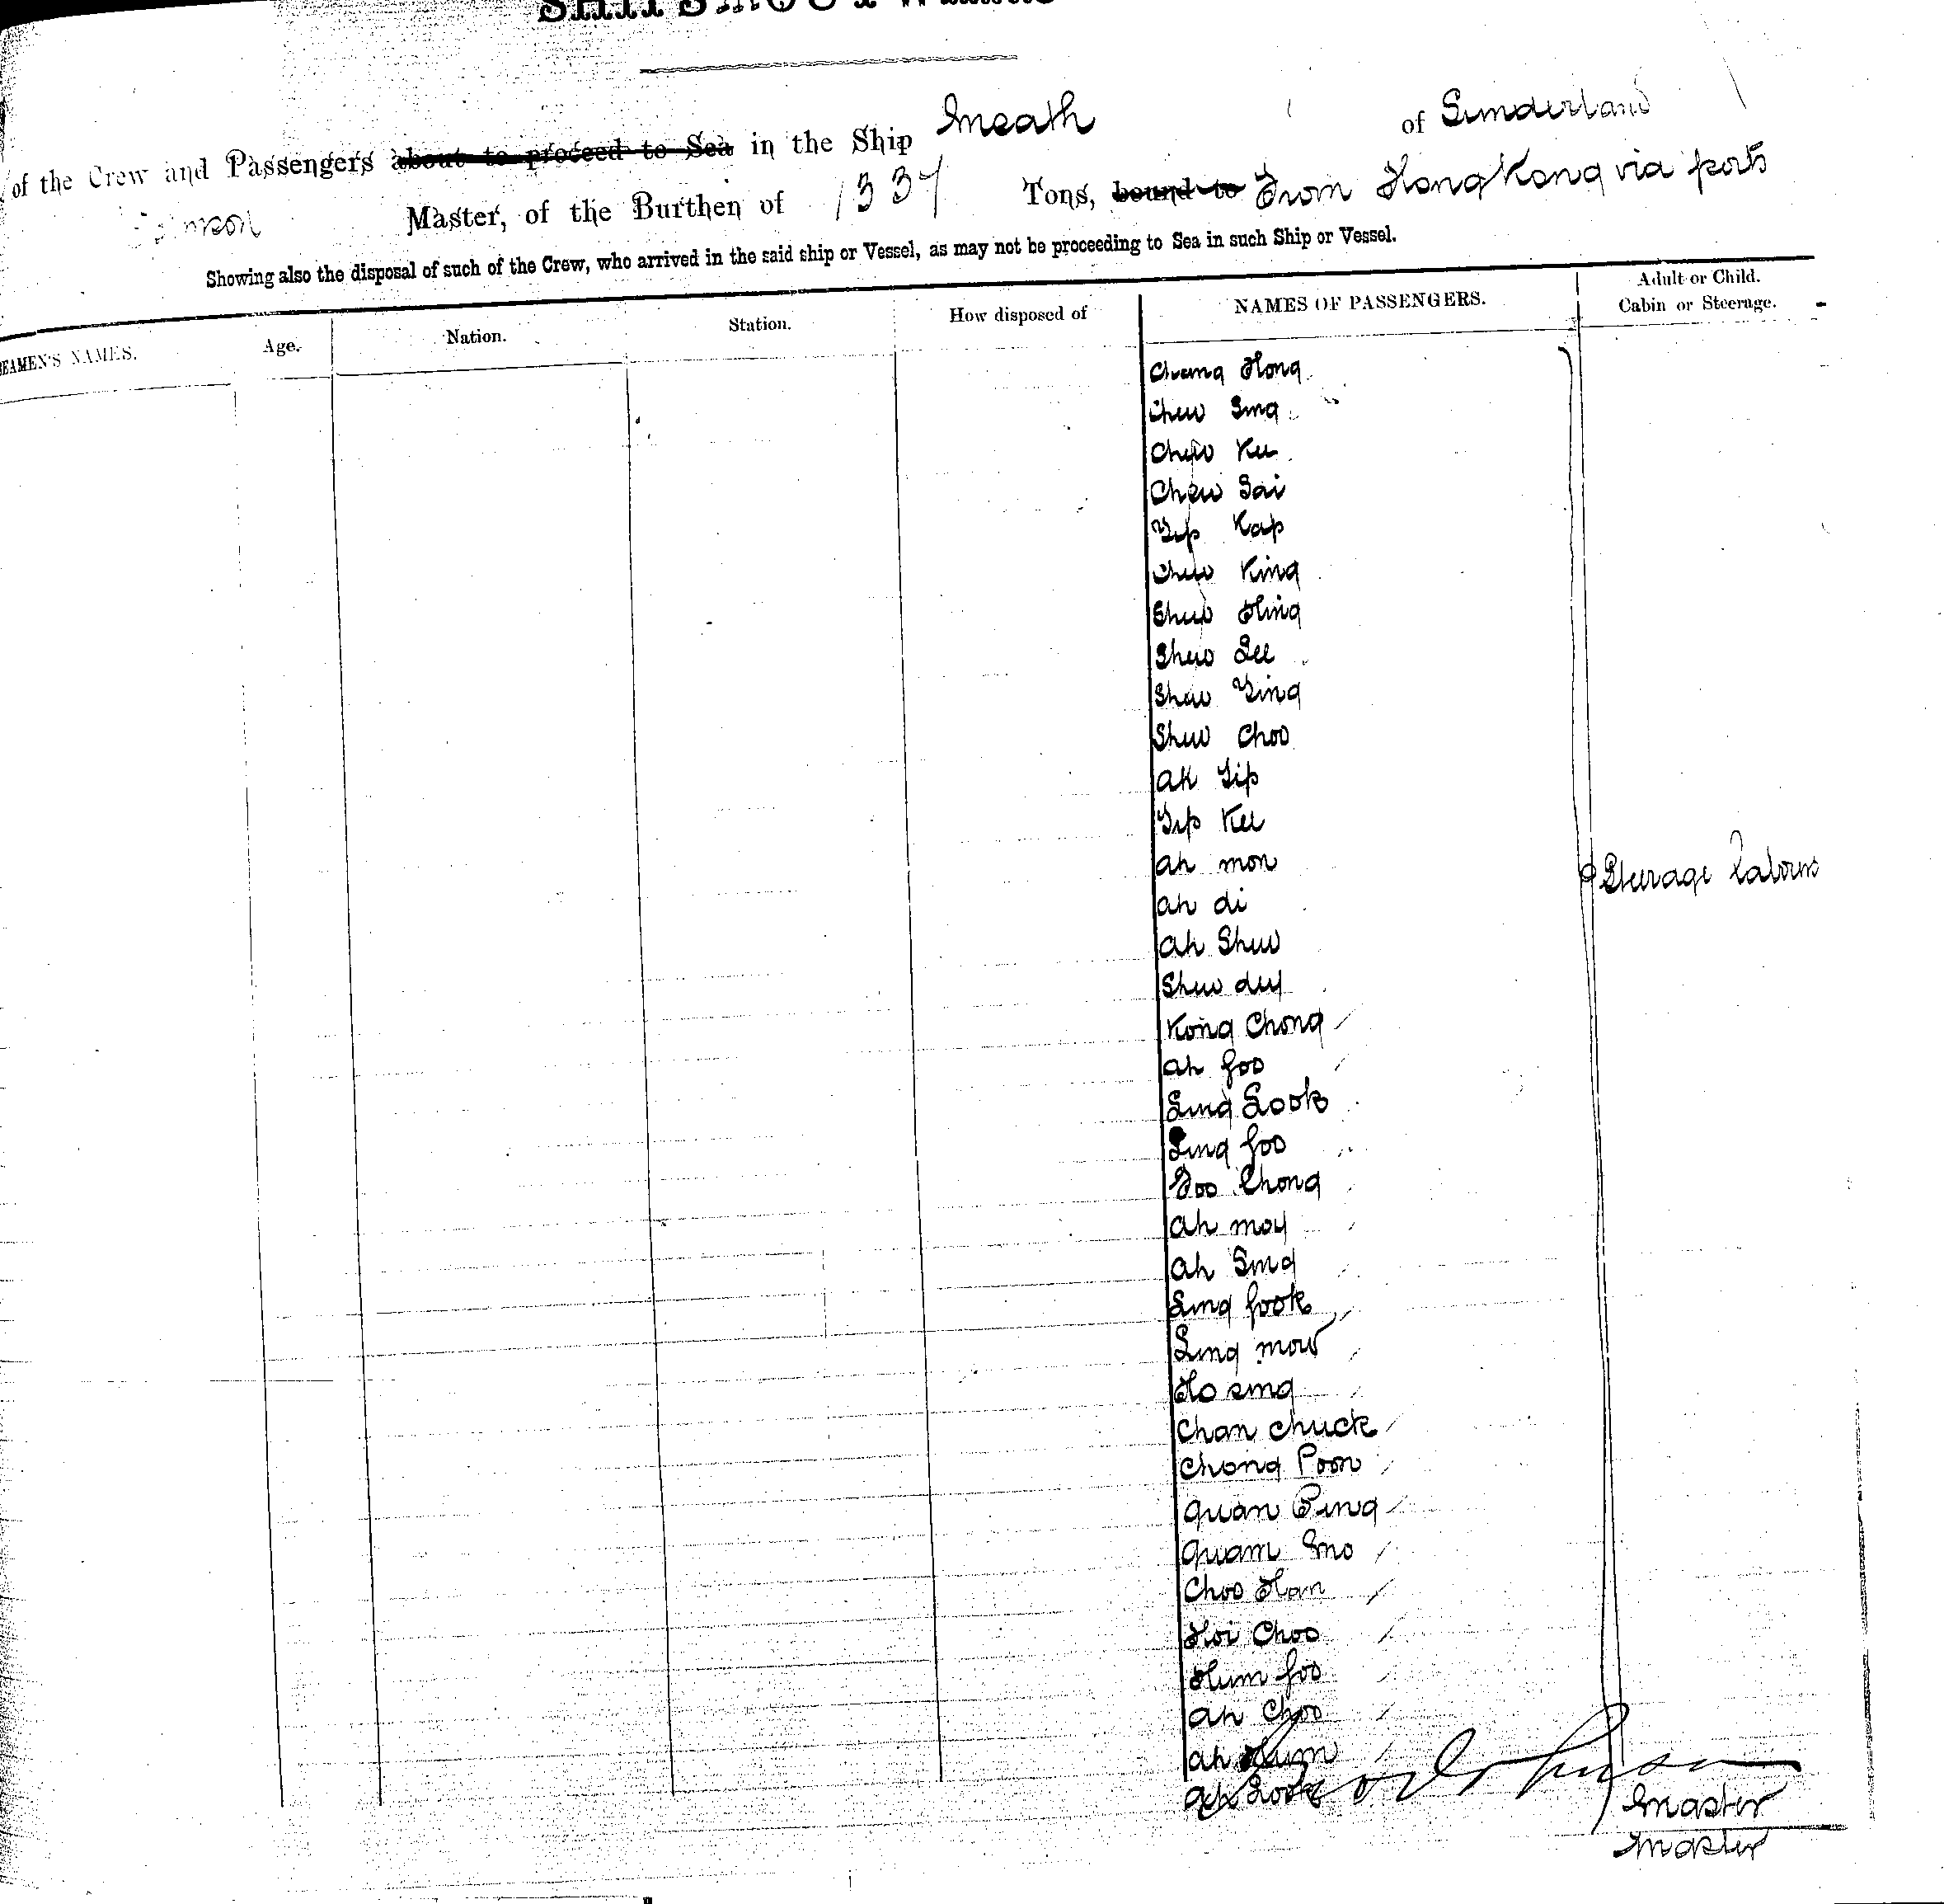 of the Crew and Passengers about to proceed to Sea in the Ship Meath of Sunderland
Master, of the Burthen of 1337 Tons, bound to From Hong Kong via ports
Showing also the disposal of such of the Crew, who arrived in the said ship or Vessel, as may not be proceeding to Sea in such Ship or Vessel.
SEAMEN'S NAMES. Age. Nation. Station. How disposed of NAMES OF PASSENGERS. Adult or Child. Cabin or Steerage.
Chung Hong
Chew Sing
Chew Kee
Chew Sai
Yip Kap
Chew King
Shew Hing
Shew Lee
Shew Ying
Shew Choo
Ah Yip
Yip Kee
Ah mon
Ah di
Ah Shew
Shew duy
Kong Chong
Ah foo
Sing Look
Sing foo
Foo Chong
Ah moy
Ah Sing
Sing fook
Sing mow
Ho sing
Chan Chuck
Chong Poon
Quan Ping
Quam Mo
Choo Han
Hoi Choo
Hum foo
Ah Choo
Ah Hum
Ah Look
Steerage
Master
Master